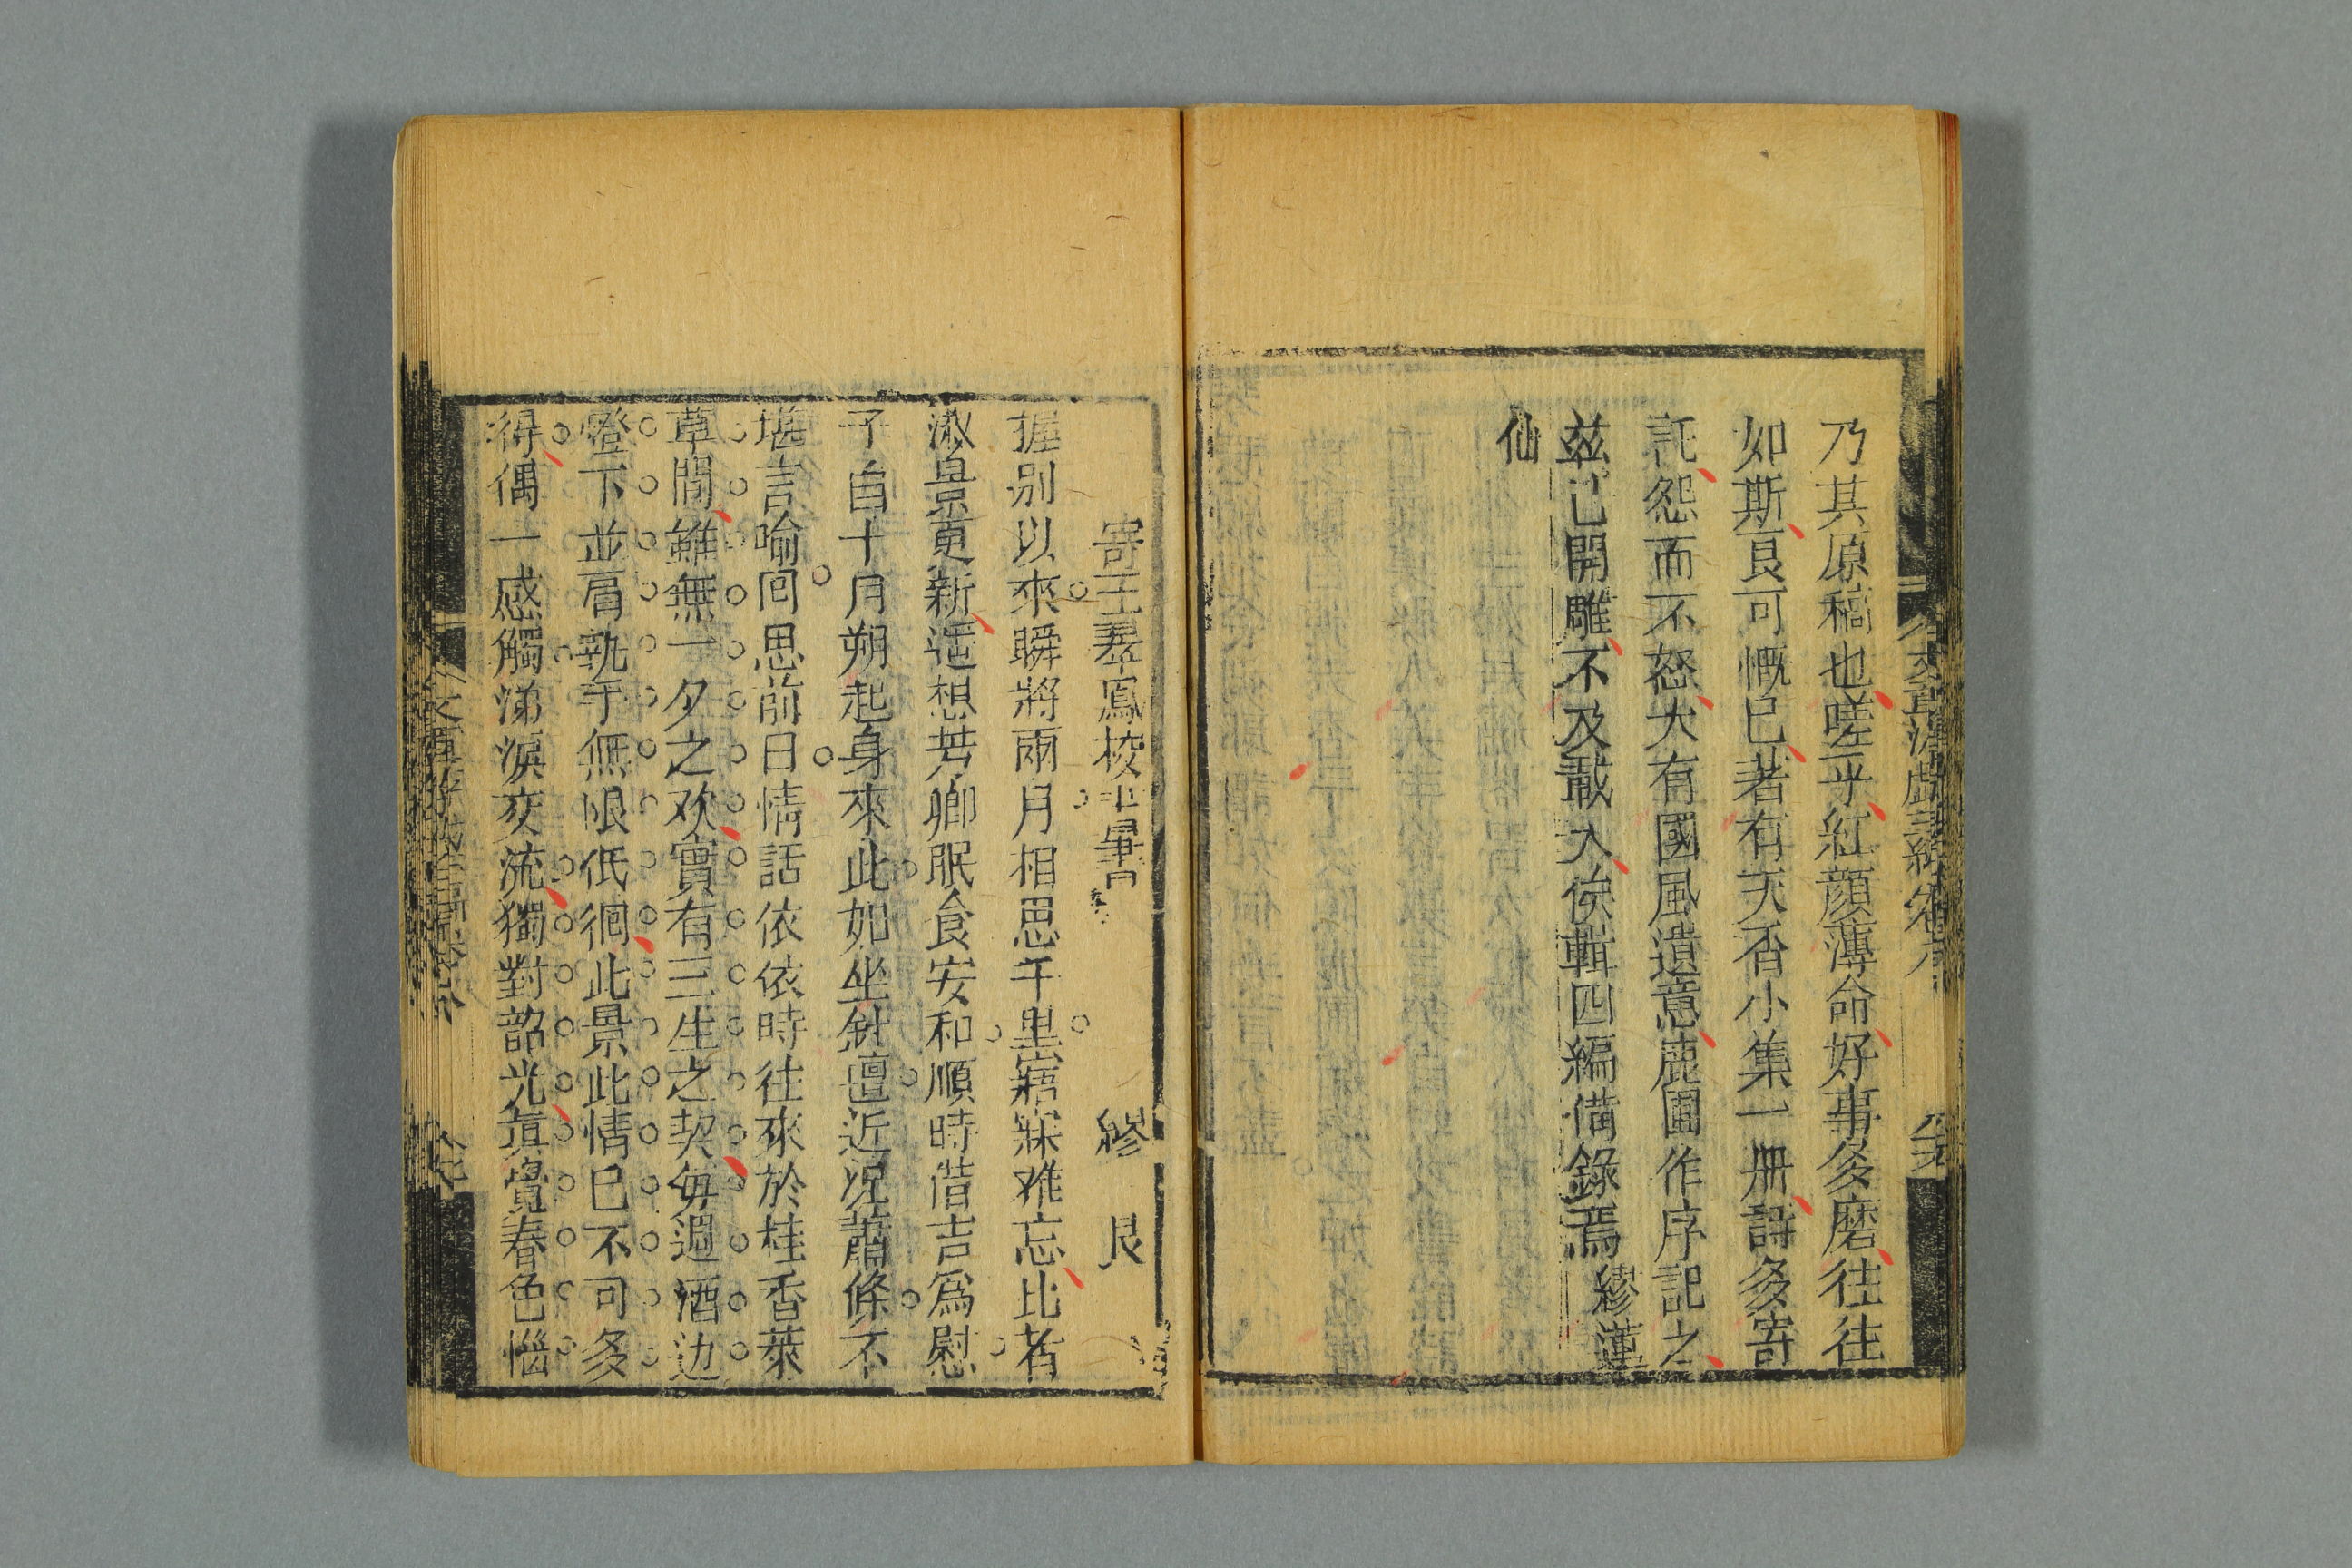 乃其原稿也嗟乎紅顔薄命好事多磨往往
如斯良可慨已著有天香小集一册詩多寄
託怨而不怒大有國風遺意鹿圃作序記之
玆已開雕不及載入俟輯四編備錄焉 繆蓮
仙
寄王翠鳳校書 繆艮
握別以來瞬將兩月相思千里寤寐难忘比者
淑景更新遥想芳卿眠食安和順時偕吉爲慰
予自十月朔起身來此如坐針氊近况蕭條不
堪言喻囘思前日情話依依時往來於桂香萊
草間雖無一夕之欢實有三生之契每遇酒边
燈下並肩執手無限低徊此景此情已不可多
得偶一感觸涕淚交流獨對韶光眞覺春色惱